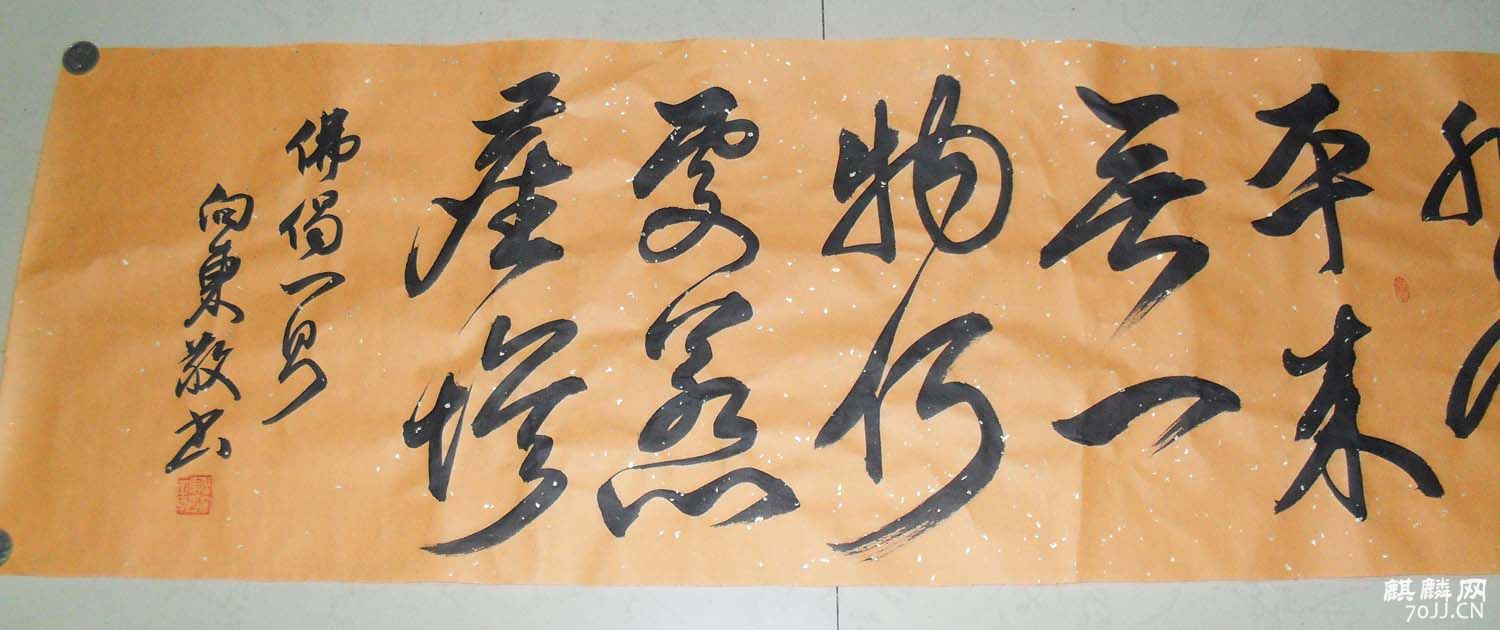 本来
無一
物何
處惹
塵埃
佛偈一首
向東敬书
麒麟网
70JJ.CN